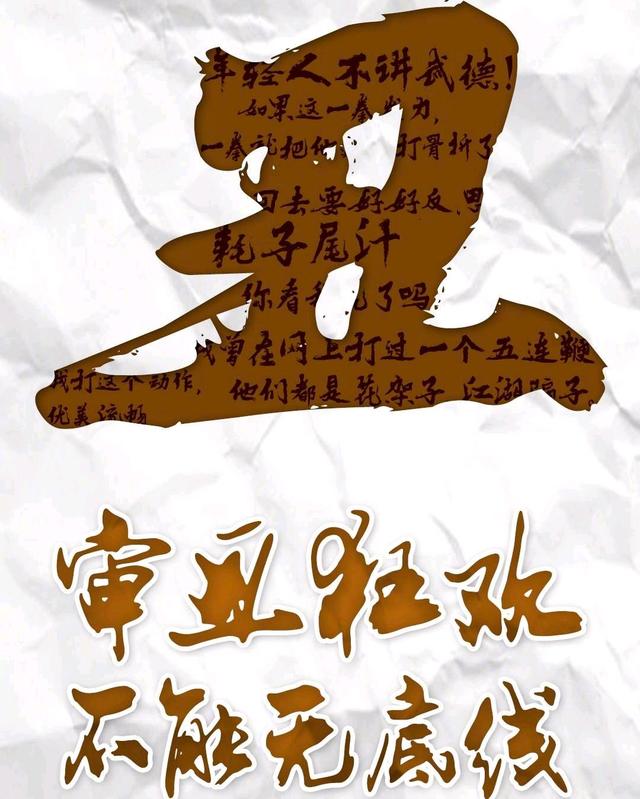 丑
年轻人不讲武德!
如果这一拳发力,
一拳就把他 打骨折了
回去要好好反思
耗子尾汁
你看我 了吗
我曾在网上打过一个五连鞭
我打这个动作, 他们都是花架子 江湖骗子。
优美流畅
审丑狂欢
不能无底线